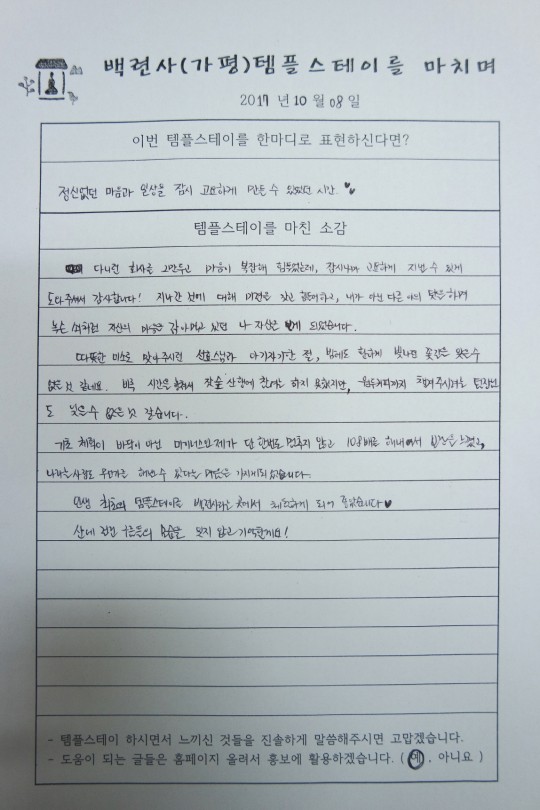 백련사(가평)템플스테이를 마치며
2017 년 10 월 08 일
이번 템플스테이를 한마디로 표현하신다면?
정신없던 마음과 일상을 잠시 고요하게 만들 수 있었던 시간.
템플스테이를 마친 소감
다니던 회사를 그만두고 마음이 복잡해 힘들었는데, 잠시나마 고요하게 지낼 수 있게
도와주셔서 감사합니다! 지나간 것에 대해 미련을 갖고 힘들어하고, 내가 아닌 다른 이의 탓을 하며
녹슨 쇠처럼 자신의 마음을 갉아먹고 있던 나 자신을 보게 되었습니다.
따뜻한 미소로 맞아주시던 선효스님과 아기자기한 절, 밤에도 환하게 빛나던 꽃길은 잊을 수
없을 것 같네요. 비록 시간을 잣숲 산행에 참여는 하지 못했지만, 챙겨주시려는 팀장님
도 잊을 수 없을 것 같습니다.
기초 체력이 바닥이 아닌 마이너스인 제가 단 한번도 멈추지 않고 108배를 해내어서 느꼈고,
나라는 사람도 무언가를 해낼 수 있다는 가지게 되었습니다.
인생 최초의 템플스테이를 백련사라는 곳에서 체험하게 되어 좋았습니다
산에 걸린 구름들의 모습을 잊지 않고 기억할게요!
- 템플스테이 하시면서 느끼신 것들을 진솔하게 말씀해주시면 고맙겠습니다.
- 도움이 되는 글들은 홈페이지 올려서 홍보에 활용하겠습니다. ( 예 , 아니요 )